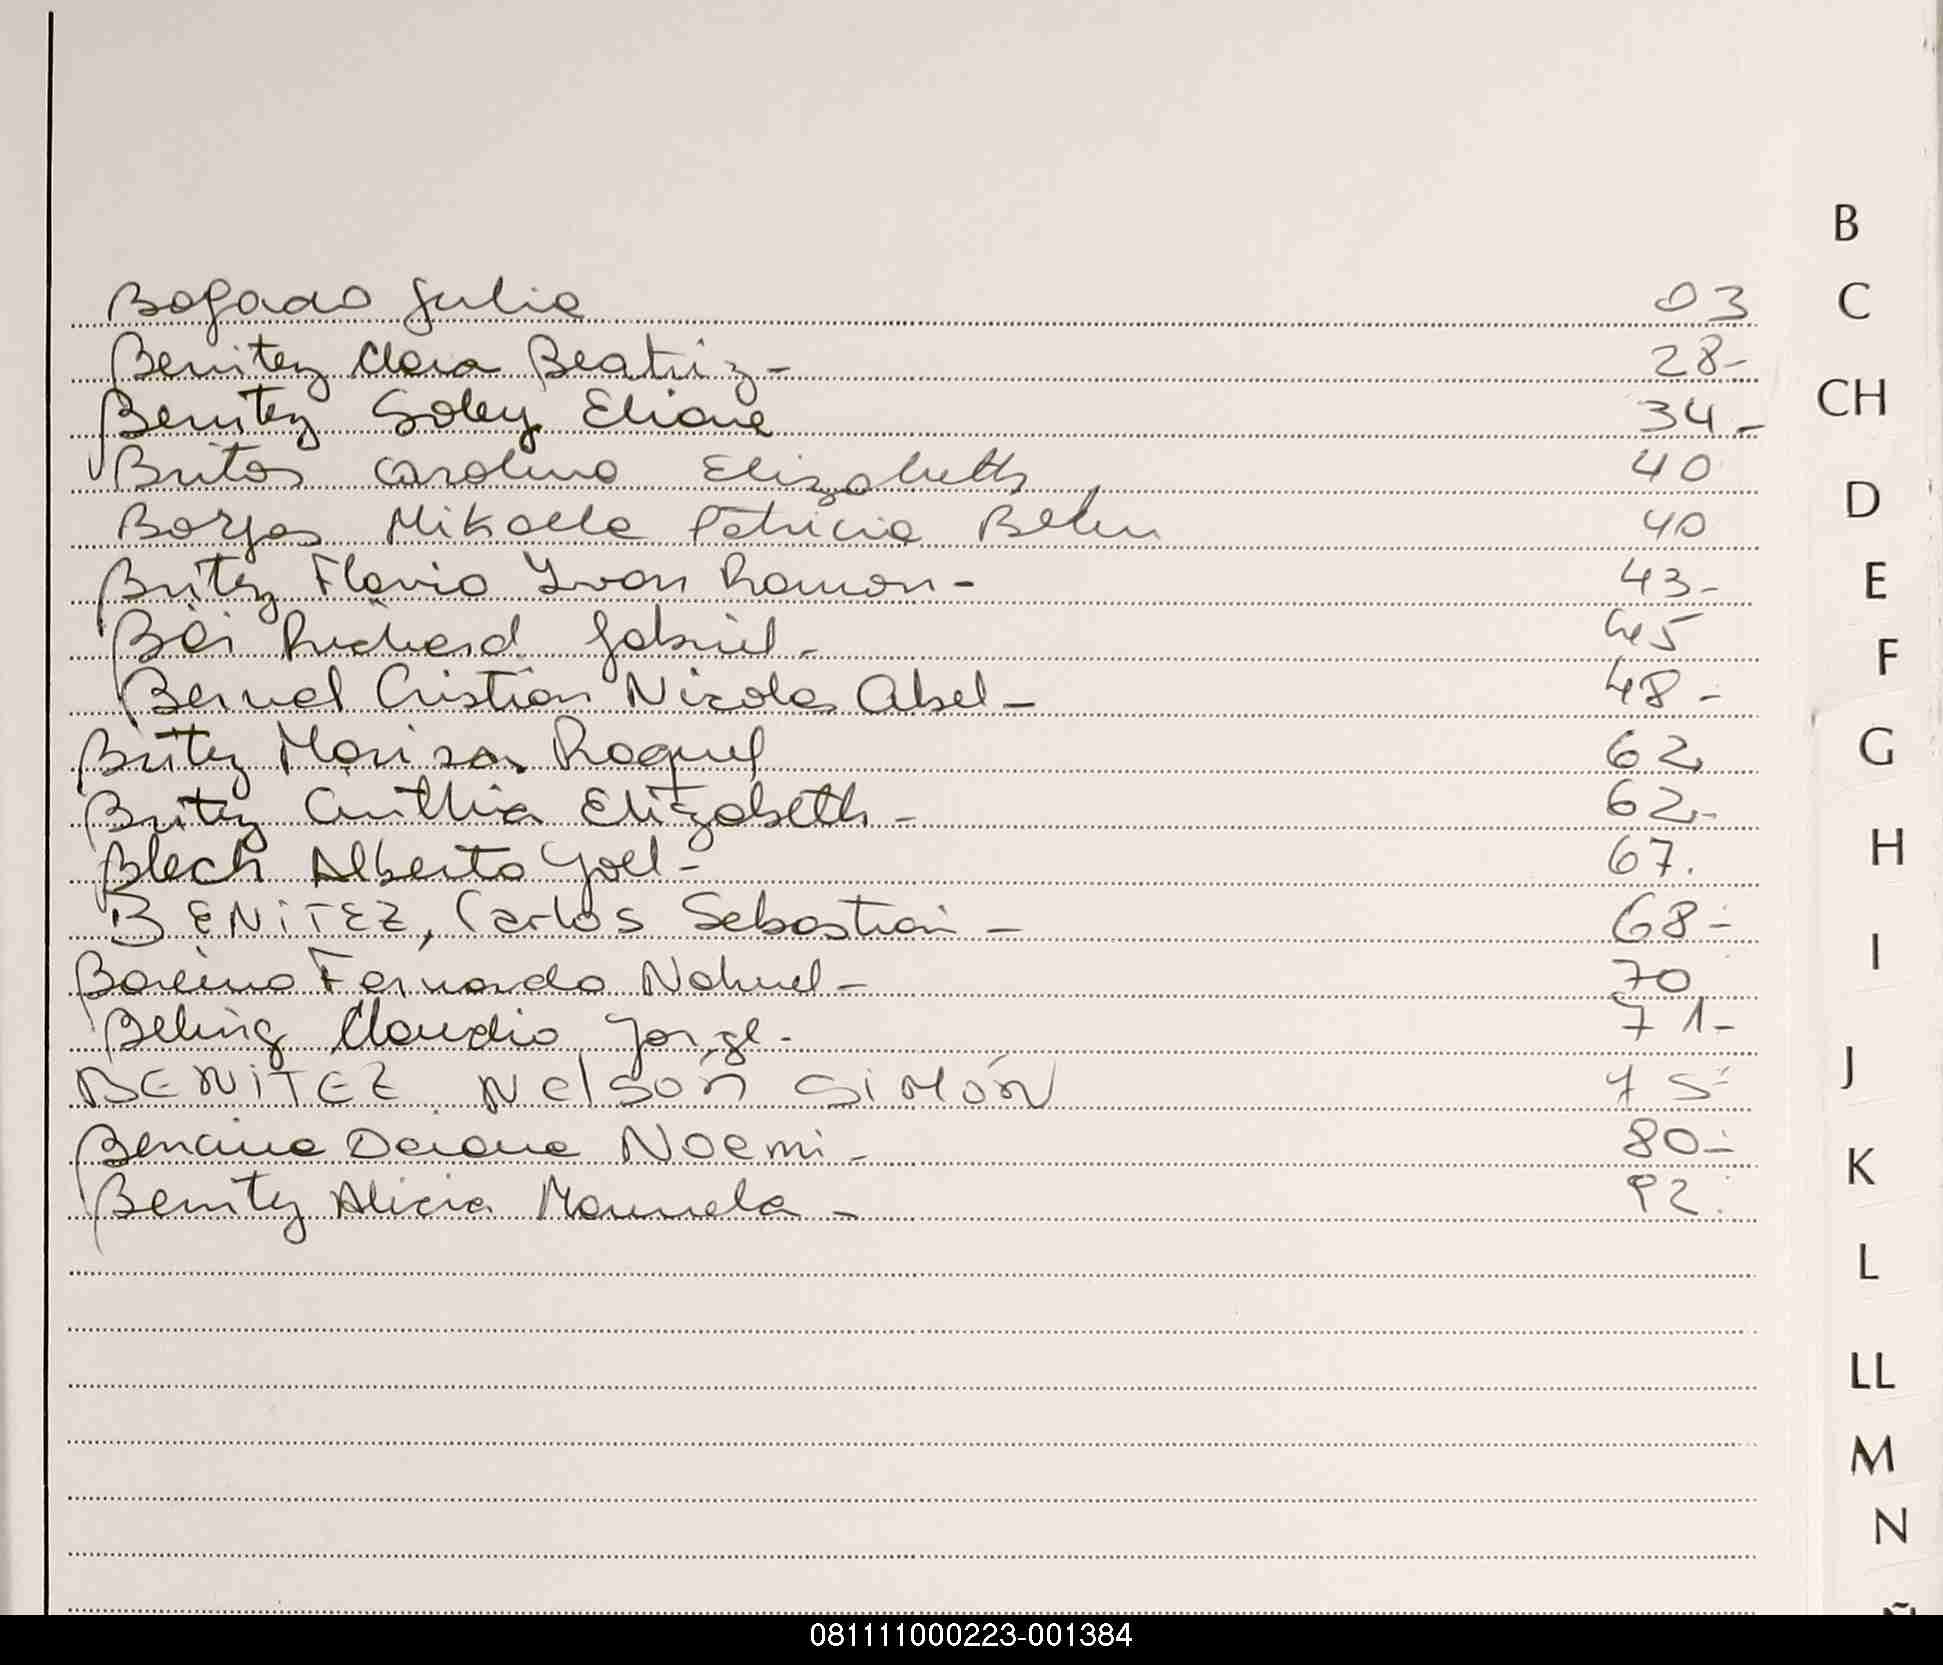 Bogado Julio 03
Benitez Clara Beatriz - 28-
Benitez Soley Eliane 34 -
Britos Carolina Elizabeth 40
Borjas Mikaela Patricia Belen 40
Britez Flavio Yvan Ramon - 43-
Richard Gabriel - 45
Bernal Cristian Nicolas Abel - 48 -
Britez Marisa Raquel 62
Britez Cinthia Elizabeth - 62-
Blech Alberto Yoel - 67.
BENITEZ, Carlos Sebastian - 68-
Fernando Nahuel - 70
Beling Claudio Jorge - 71-
BENITEZ Nelson SIMÓN 75
Daiana Noemi - 80-
Benitez Alicia Manuela - 92
B
C
CH
D
E
F
G
H
I
J
K
L
LL
M
N
Ñ
081111000223-001384